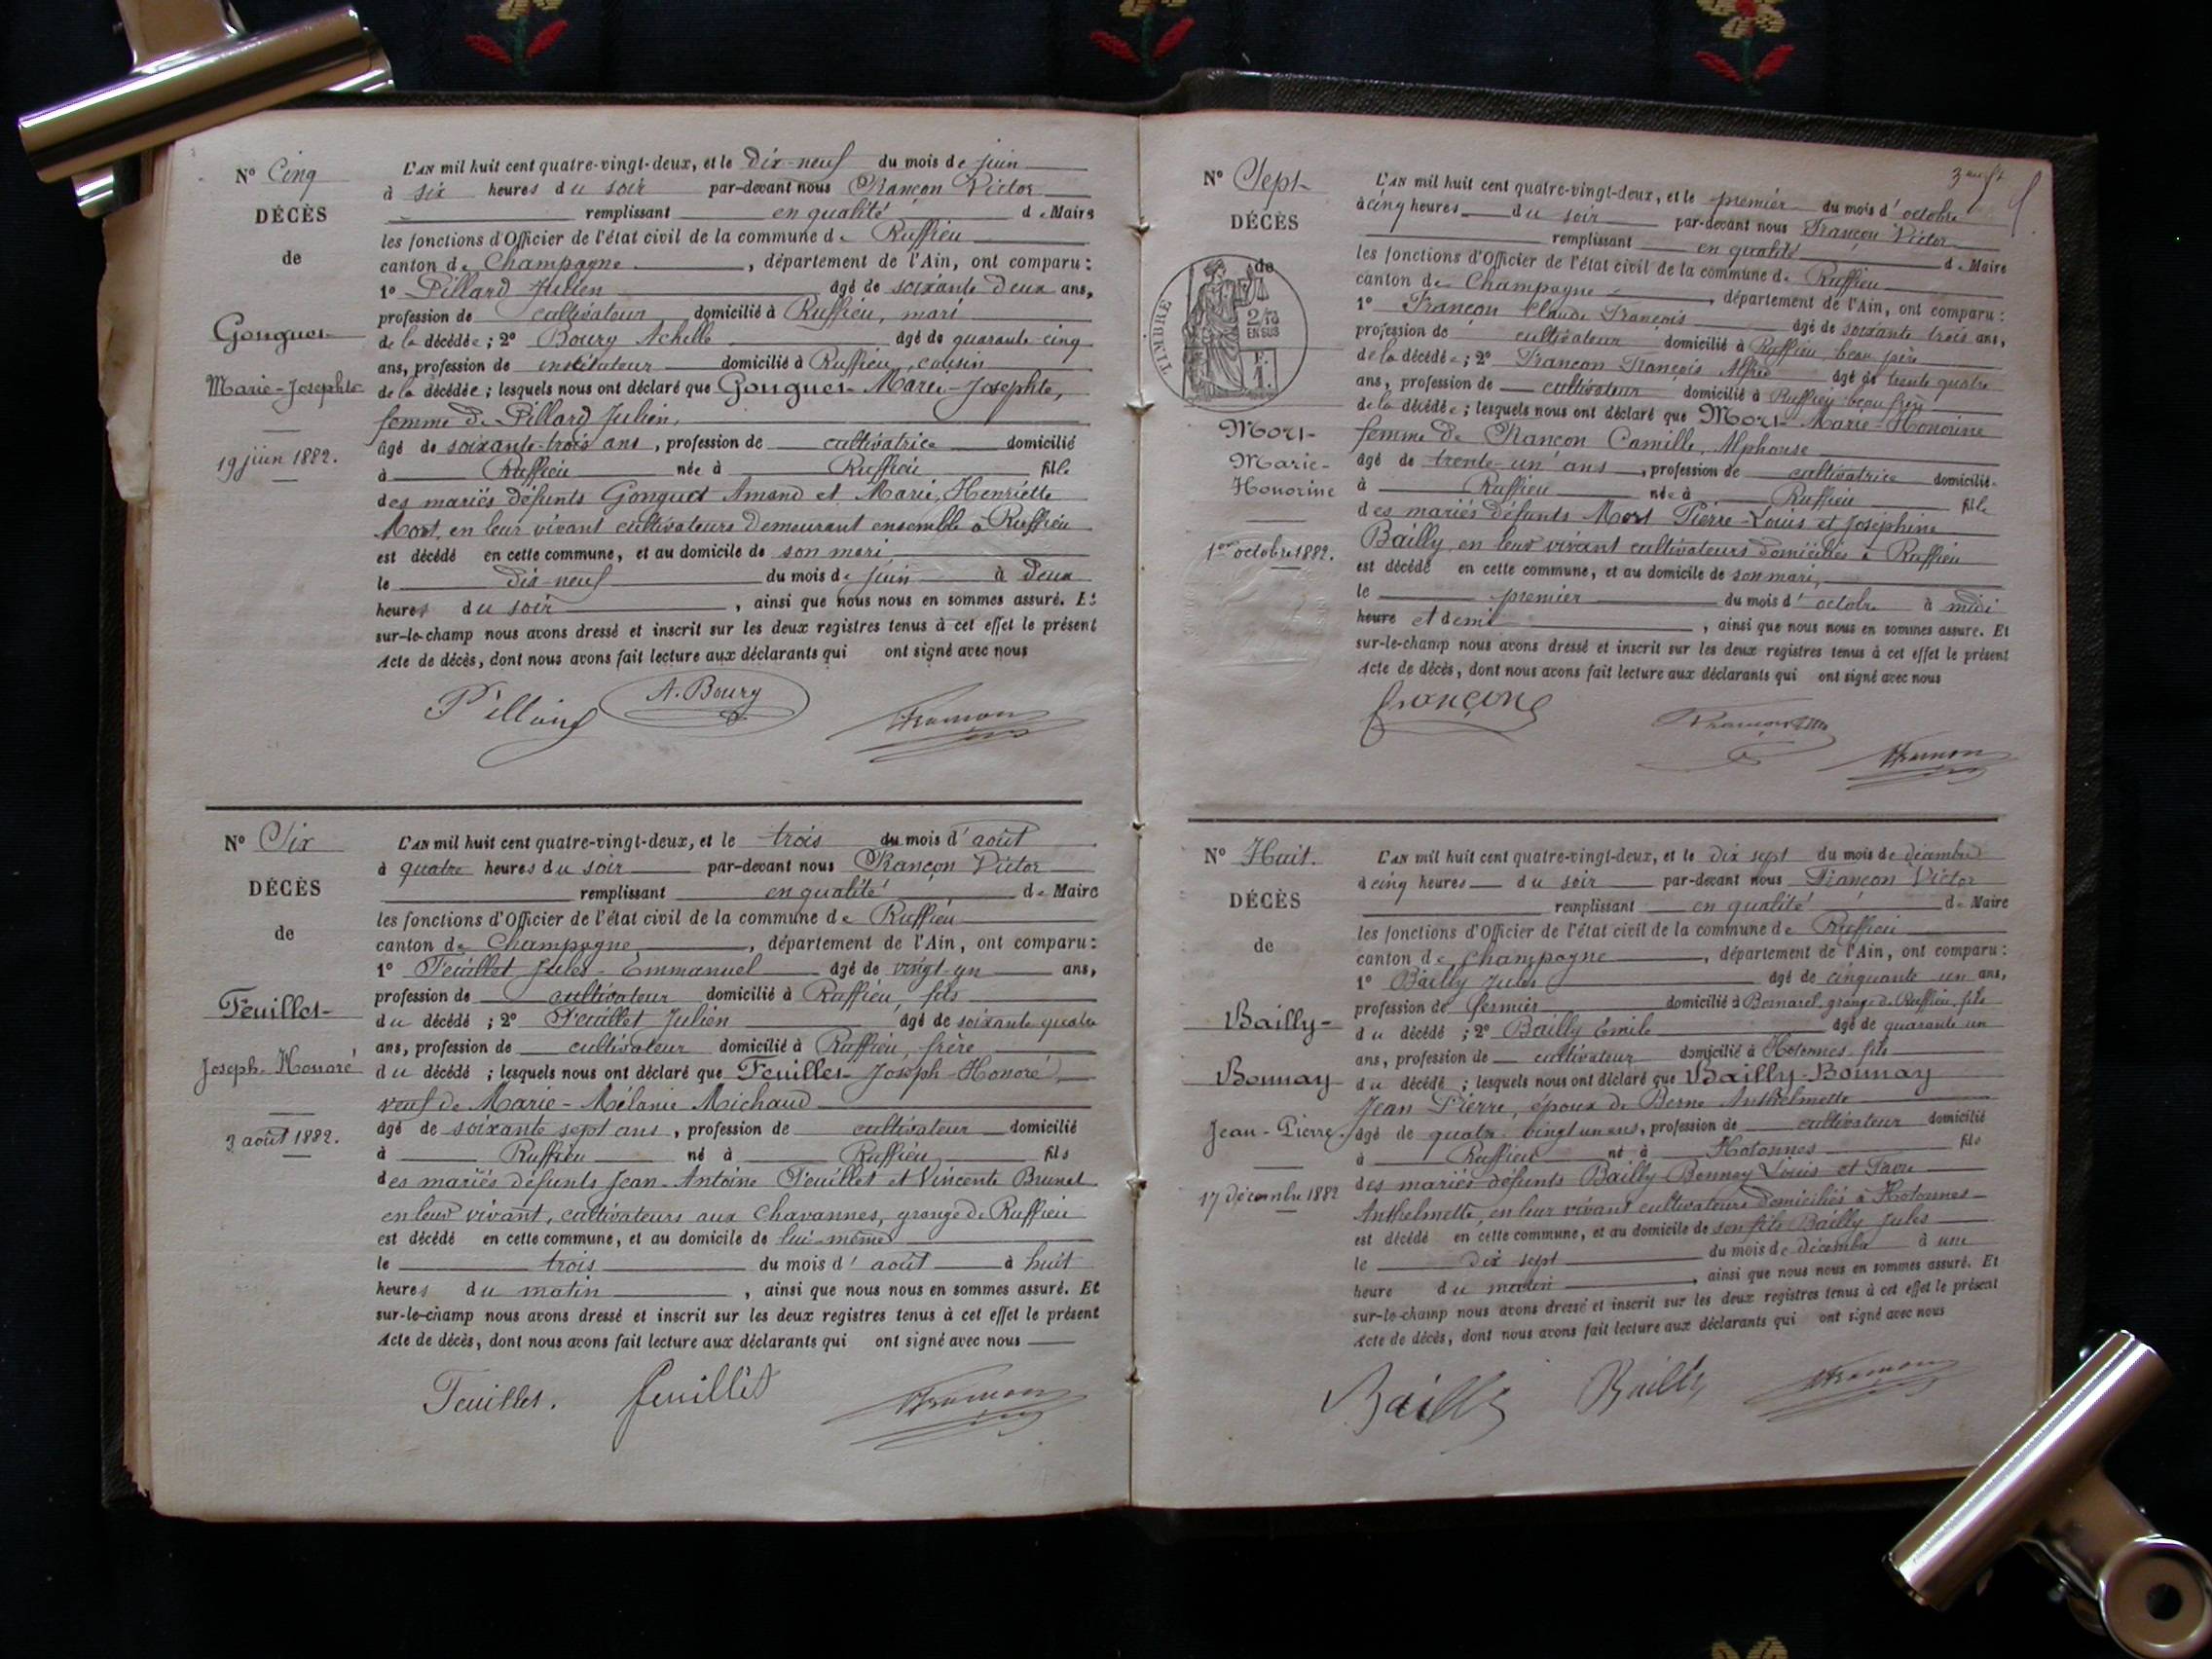 N° Cinq
DÉCÈS
de
Gonguet
Marie-Josephte
19 juin 1882.
L'AN mil huit cent quatre-vingt-deux, et le dix-neuf du mois de juin
à six heures du soir par-devant nous Françon Victor
remplissant en qualité de Maire
les fonctions d'Officier de l'état civil de la commune de Ruffieu
canton de Champagne, département de l'Ain, ont comparu:
1° Pillard Julien âgé de soixante deux ans,
profession de cultivateur domicilié à Ruffieu, mari
de la décédée; 2° Boury Achille âgé de quarante-cinq
ans, profession de instituteur domicilié à Ruffieu, cousin
de la décédée; lesquels nous ont déclaré que Gonguet Marie-Josephte,
femme de Pillard Julien,
âgé de soixante-trois ans, profession de cultivatrice domicilié
à Ruffieu née à Ruffieu fille
des mariés défunts Gonguet Amand et Marie, Henriette
Mort, en leur vivant cultivateurs demeurant ensemble à Ruffieu
est décédé en cette commune, et au domicile de son mari
le dix-neuf du mois de juin à deux
heures du soir, ainsi que nous nous en sommes assuré. Et
sur-le-champ nous avons dressé et inscrit sur les deux registres tenus à cet effet le présent
Acte de décès, dont nous avons fait lecture aux déclarants qui ont signé avec nous
Pillard A. Boury Françon
N° Six
DÉCÈS
de
Feuillet
Joseph-Honoré
3 août 1882.
L'AN mil huit cent quatre-vingt-deux, et le trois du mois d'août
à quatre heures du soir par-devant nous Françon Victor
remplissant en qualité de Maire
les fonctions d'Officier de l'état civil de la commune de Ruffieu
canton de Champagne, département de l'Ain, ont comparu:
1° Feuillet Jules-Emmanuel âgé de vingt-un ans,
profession de cultivateur domicilié à Ruffieu, fils
du décédé; 2° Feuillet Julien âgé de soixante quatre
ans, profession de cultivateur domicilié à Ruffieu, frère
du décédé; lesquels nous ont déclaré que Feuillet Joseph-Honoré,
veuf de Marie-Mélanie Michaud
âgé de soixante sept ans, profession de cultivateur domicilié
à Ruffieu né à Ruffieu, fils
des mariés défunts Jean-Antoine Feuillet et Vincente Brunet
en leur vivant, cultivateurs aux Chavannes, grange de Ruffieu
est décédé en cette commune, et au domicile de lui-même
le trois du mois d'août à huit
heures du matin, ainsi que nous nous en sommes assuré. Et
sur-le-champ nous avons dressé et inscrit sur les deux registres tenus à cet effet le présent
Acte de décès, dont nous avons fait lecture aux déclarants qui ont signé avec nous
Feuillet. feuillet Françon
N° Sept
DÉCÈS
de
TIMBRE
2/10
EN SUS
Mort
Marie-
Honorine
1er octobre 1882.
L'AN mil huit cent quatre-vingt-deux, et le premier du mois d'octobre
à cinq heures du soir par-devant nous Françon Victor
remplissant en qualité de Maire
les fonctions d'Officier de l'état civil de la commune de Ruffieu
canton de Champagne, département de l'Ain, ont comparu:
1° Françon Claude François âgé de soixante trois ans,
profession de cultivateur domicilié à Ruffieu, beau père
de la décédée; 2° Françon François Alfred âgé de trente quatre
ans, profession de cultivateur domicilié à Ruffieu beau frère
de la décédée; lesquels nous ont déclaré que Mort Marie-Honorine
femme de Françon Camille, Alphonse
âgé de trente-un ans, profession de cultivatrice domicilié
à Ruffieu née à Ruffieu fille
des mariés défunts Mort Pierre-Louis et Joséphine
Bailly, en leur vivant cultivateurs domiciliés à Ruffieu
est décédé en cette commune, et au domicile de son mari,
le premier du mois d'octobre à midi
heure et demie, ainsi que nous nous en sommes assuré. Et
sur-le-champ nous avons dressé et inscrit sur les deux registres tenus à cet effet le présent
Acte de décès, dont nous avons fait lecture aux déclarants qui ont signé avec nous
françon Françon Françon
N° Huit.
DÉCÈS
de
Bailly-
Bonnay
Jean-Pierre.
17 décembre 1882
L'AN mil huit cent quatre-vingt-deux, et le dix sept du mois de décembre
à cinq heures du soir par-devant nous Françon Victor
remplissant en qualité de Maire
les fonctions d'Officier de l'état civil de la commune de Ruffieu
canton de Champagne, département de l'Ain, ont comparu:
1° Bailly Jules âgé de cinquante un ans,
profession de fermier domicilié à grange de Ruffieu, fils
du décédé; 2° Bailly Émile âgé de quarante un
ans, profession de cultivateur domicilié à Hotonnes fils
du décédé; lesquels nous ont déclaré que Bailly-Bonnay
Jean Pierre, époux de Berne Anthelmette
âgé de quatre vingt un ans, profession de cultivateur domicilié
à Ruffieu né à Hotonnes fils
des mariés défunts Bailly-Bonnay Louis et Favre
Anthelmette, en leur vivant cultivateurs domiciliés à Hotonnes
est décédé en cette commune, et au domicile de son fils Bailly Jules
le dix sept du mois de décembre à une
heure du matin, ainsi que nous nous en sommes assuré. Et
sur-le-champ nous avons dressé et inscrit sur les deux registres tenus à cet effet le présent
Acte de décès, dont nous avons fait lecture aux déclarants qui ont signé avec nous
Bailly Bailly Françon